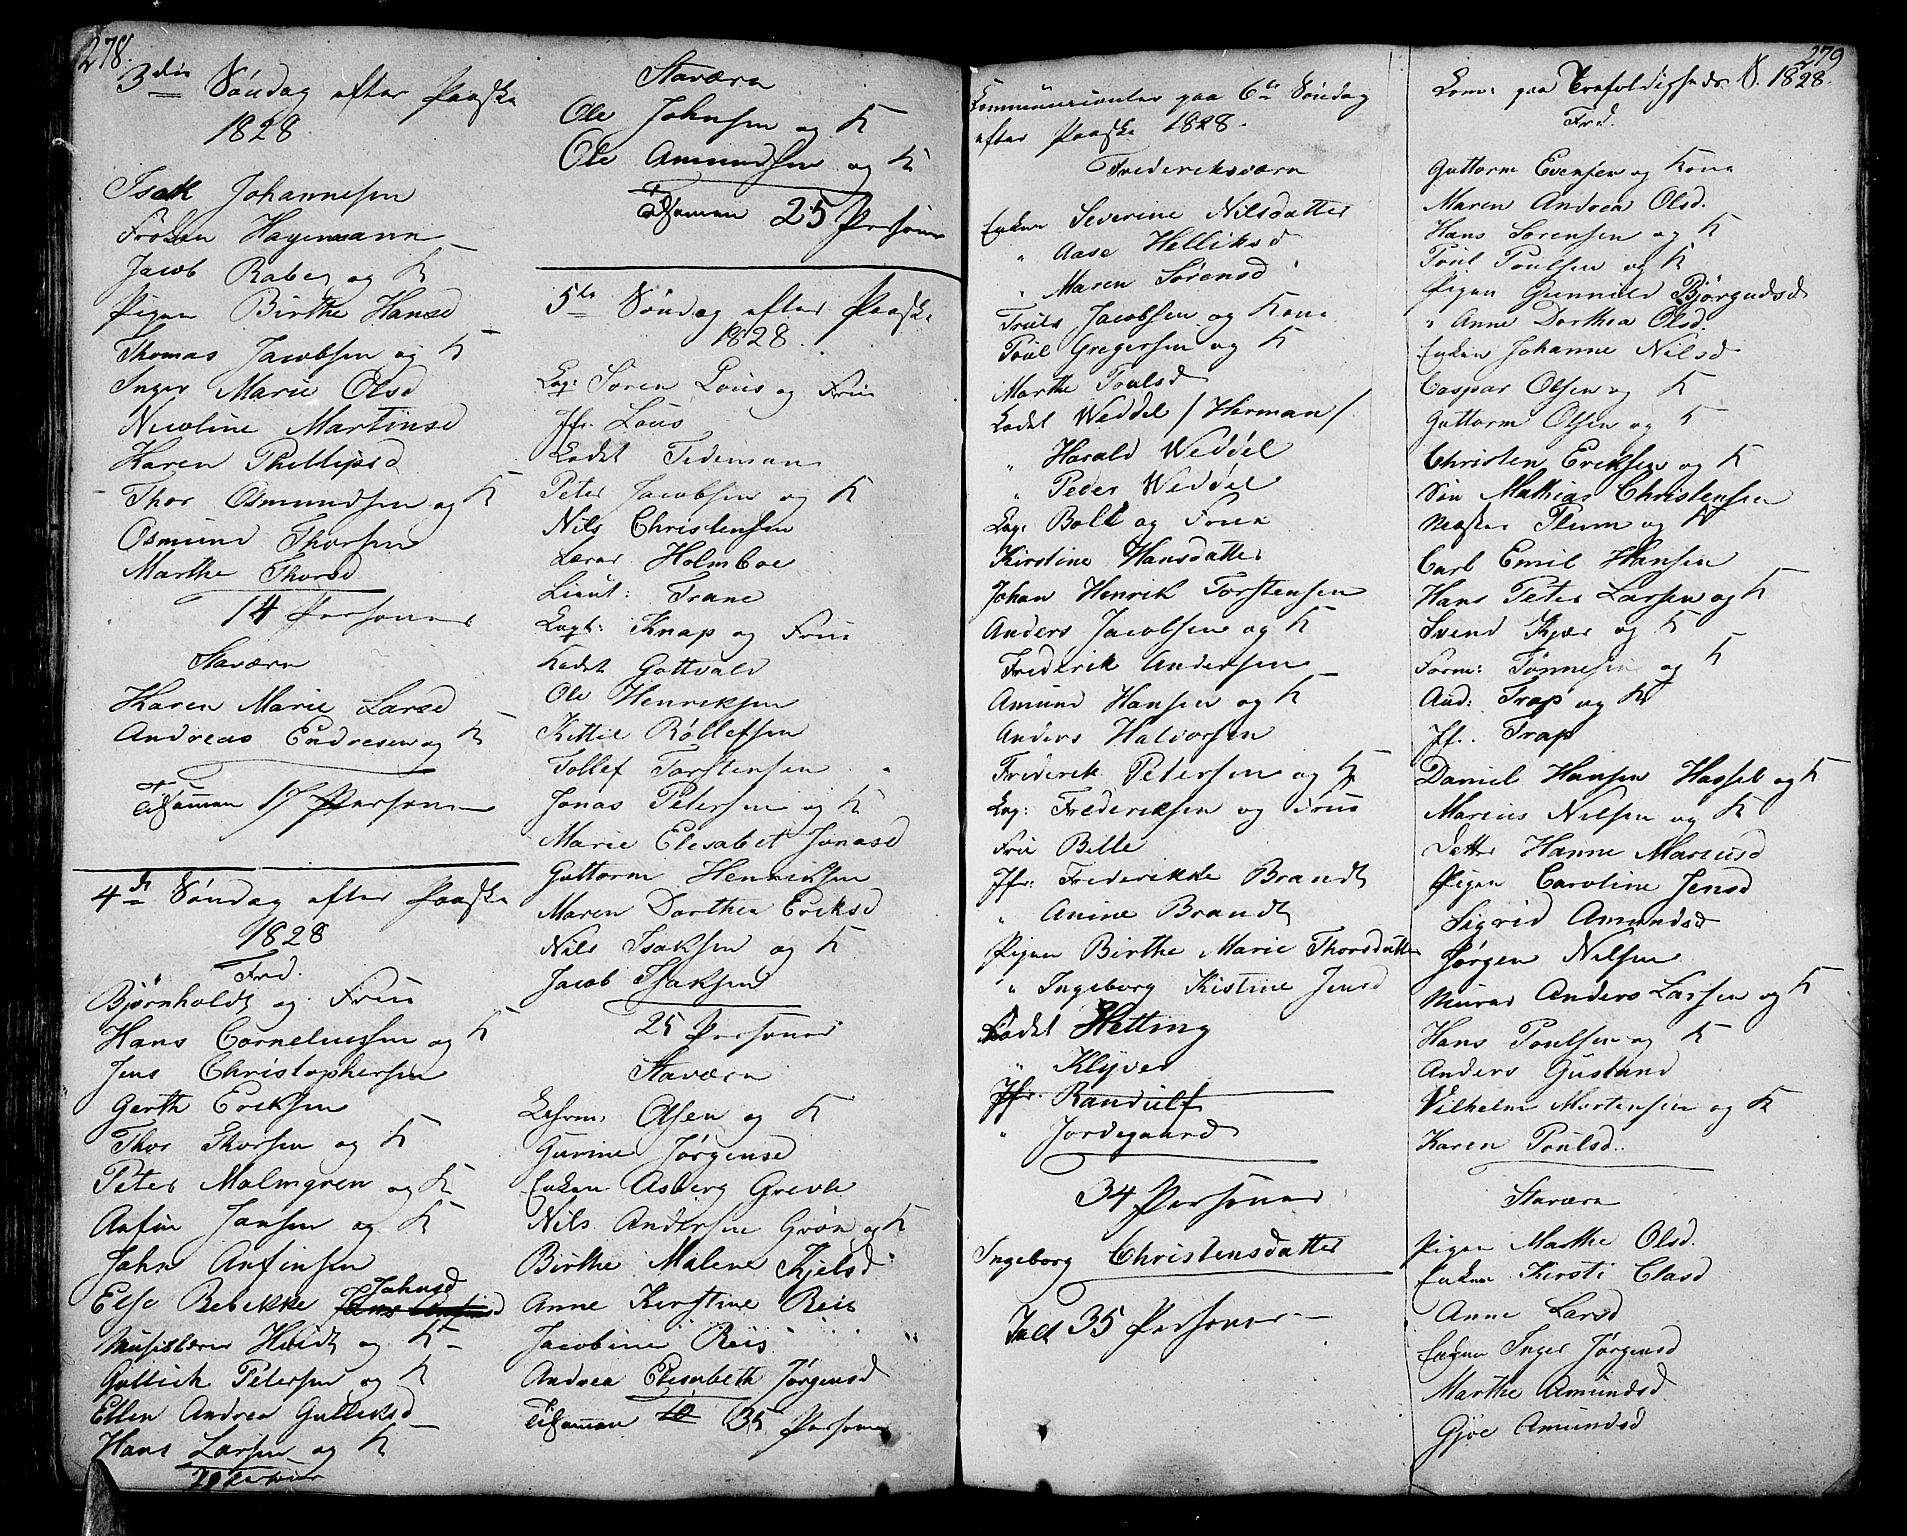 278.
3die Søndag efter Paaske
1828.
Isak Johannesen
Frøken Hagemann
Jacob Rabe og K
Pigen Birthe Hansd
Thomas Jacobsen og K
Inger Marie Olsd
Nicoline Martinsd
Karen Phillipsd
Thor Osmundsen og K
Osmund Thorsen
Marthe Thorsd
14 Personer
Staværn
Karen Marie Larsd
Andreas Endresen og K
Tilsammen 17 Personer
4de Søndag efter Paaske
1828
Frd.
Bjørnholdt og Frue
Hans Corneliussen og K
Jens Christophersen
Gerth Eriksen
Thor Thorsen og K
Peter Malmgren og K
Anfin Jansen og K
John Anfinsen
Else Rebekke Johnsd
Musiklærer Heidt og K
Gullich Petersen og K
Ellen Andrea Gulliksd
Hans Larsen og K
Staværn
Ole Johnsen og K
Ole Amundsen og K
Tilsammen 25 Personer
5te Søndag efter Paaske
1828.
Cap: Søren Lous og Frue
Jfr. Lous
Cadet Tedeman
Peter Jacobsen og K
Nils Christensen
Lærer Holmboe
Lieut: Trane
Capt: Knap og Frue
Kadet Gottvald
Ole Henriksen
Kittil Røllefsen
Tollef Torstensen
Jonas Petersen og K
Marie Elisabet Jonasd
Guttorm Henriksen
Maren Dorthea Eriksd
Nils Isaksen og K
Jacob Isaksen
25 Personer
Staværn
Olsen og K
Gurine Jørgensd
Enken Asberg Greve
Nils Andersen Grøn og K
Birthe Malene Kjelsd
Anne Kirstine Reis
Jacobine Reis
Andrea Elisabeth Jørgensd
Tilsammen 10 35 Personer
Communicanter paa 6te Søndag
efter Paaske 1828.
Frederiksværn
Enken Severine Nilsdatter
" Aase Helliksd
" Maren Sørensd
Truls Jacobsen og Kone
Poul Gregersen og K
Marthe Poulsd
Cadet Weddel / Herman /
" Harald Weddel
" Peder Weddel
Cap: Boll og Frue
Kirstine Hansdatter
Johan Henrik Torstensen
Anders Jacobsen og K
Frederik Andersen
Amund Hansen og K
Anders Halvorsen
Frederik Petersen og K
Cap: Frederiksen og Frue
Fru Bille
Jfr: Frederikke Brandt
" Anine Brandt
Pigen Birthe Marie Thorsdatter
" Ingeborg Kistine Jensd
Cadet Hetting
" Klyver
Jfr. Randulf
" Jordegaard
34 Personer
Ingeborg Christensdatter
Jalt 35 Personer
279
Com: paa Trefoldigheds S. 1828.
Frd.
Guttorm Evensen og Kone
Maren Andrea Olsd.
Hans Sørensen og K
Poul Poulsen og K
Pigen Gunnild Bjørgudsd
" Anne Dorthea Olsd.
Enken Johanne Nilsd
Caspar Olsen og K
Guttorm Olsen og K
Christen Eriksen og K
Søn Mathias Christensen
Mester Plum og K
Carl Emil Hansen
Hans Peter Larsen og K
Svend Kjær og K
Form: Tønnesen og K
Aud: Trap og K
Jfr. Trap
Daniel Hansen Hassel og K
Marcus Nilsen og K
Datter Hanne Marcusd
Pigen Caroline Jensd
Sigrid Amundsd
Jørgen Nilsen
Murer Anders Larsen og K
Hans Poulsen og K
Anders Gustand
Vilhelm Mortensen og K
Karen Poulsd.
Staværn
Pigen Marthe Olsd.
Enken Kirsti Clasd
Anne Larsd
Enken Inger Jørgensd
Marthe Amundsd
Gjøe Amundsd